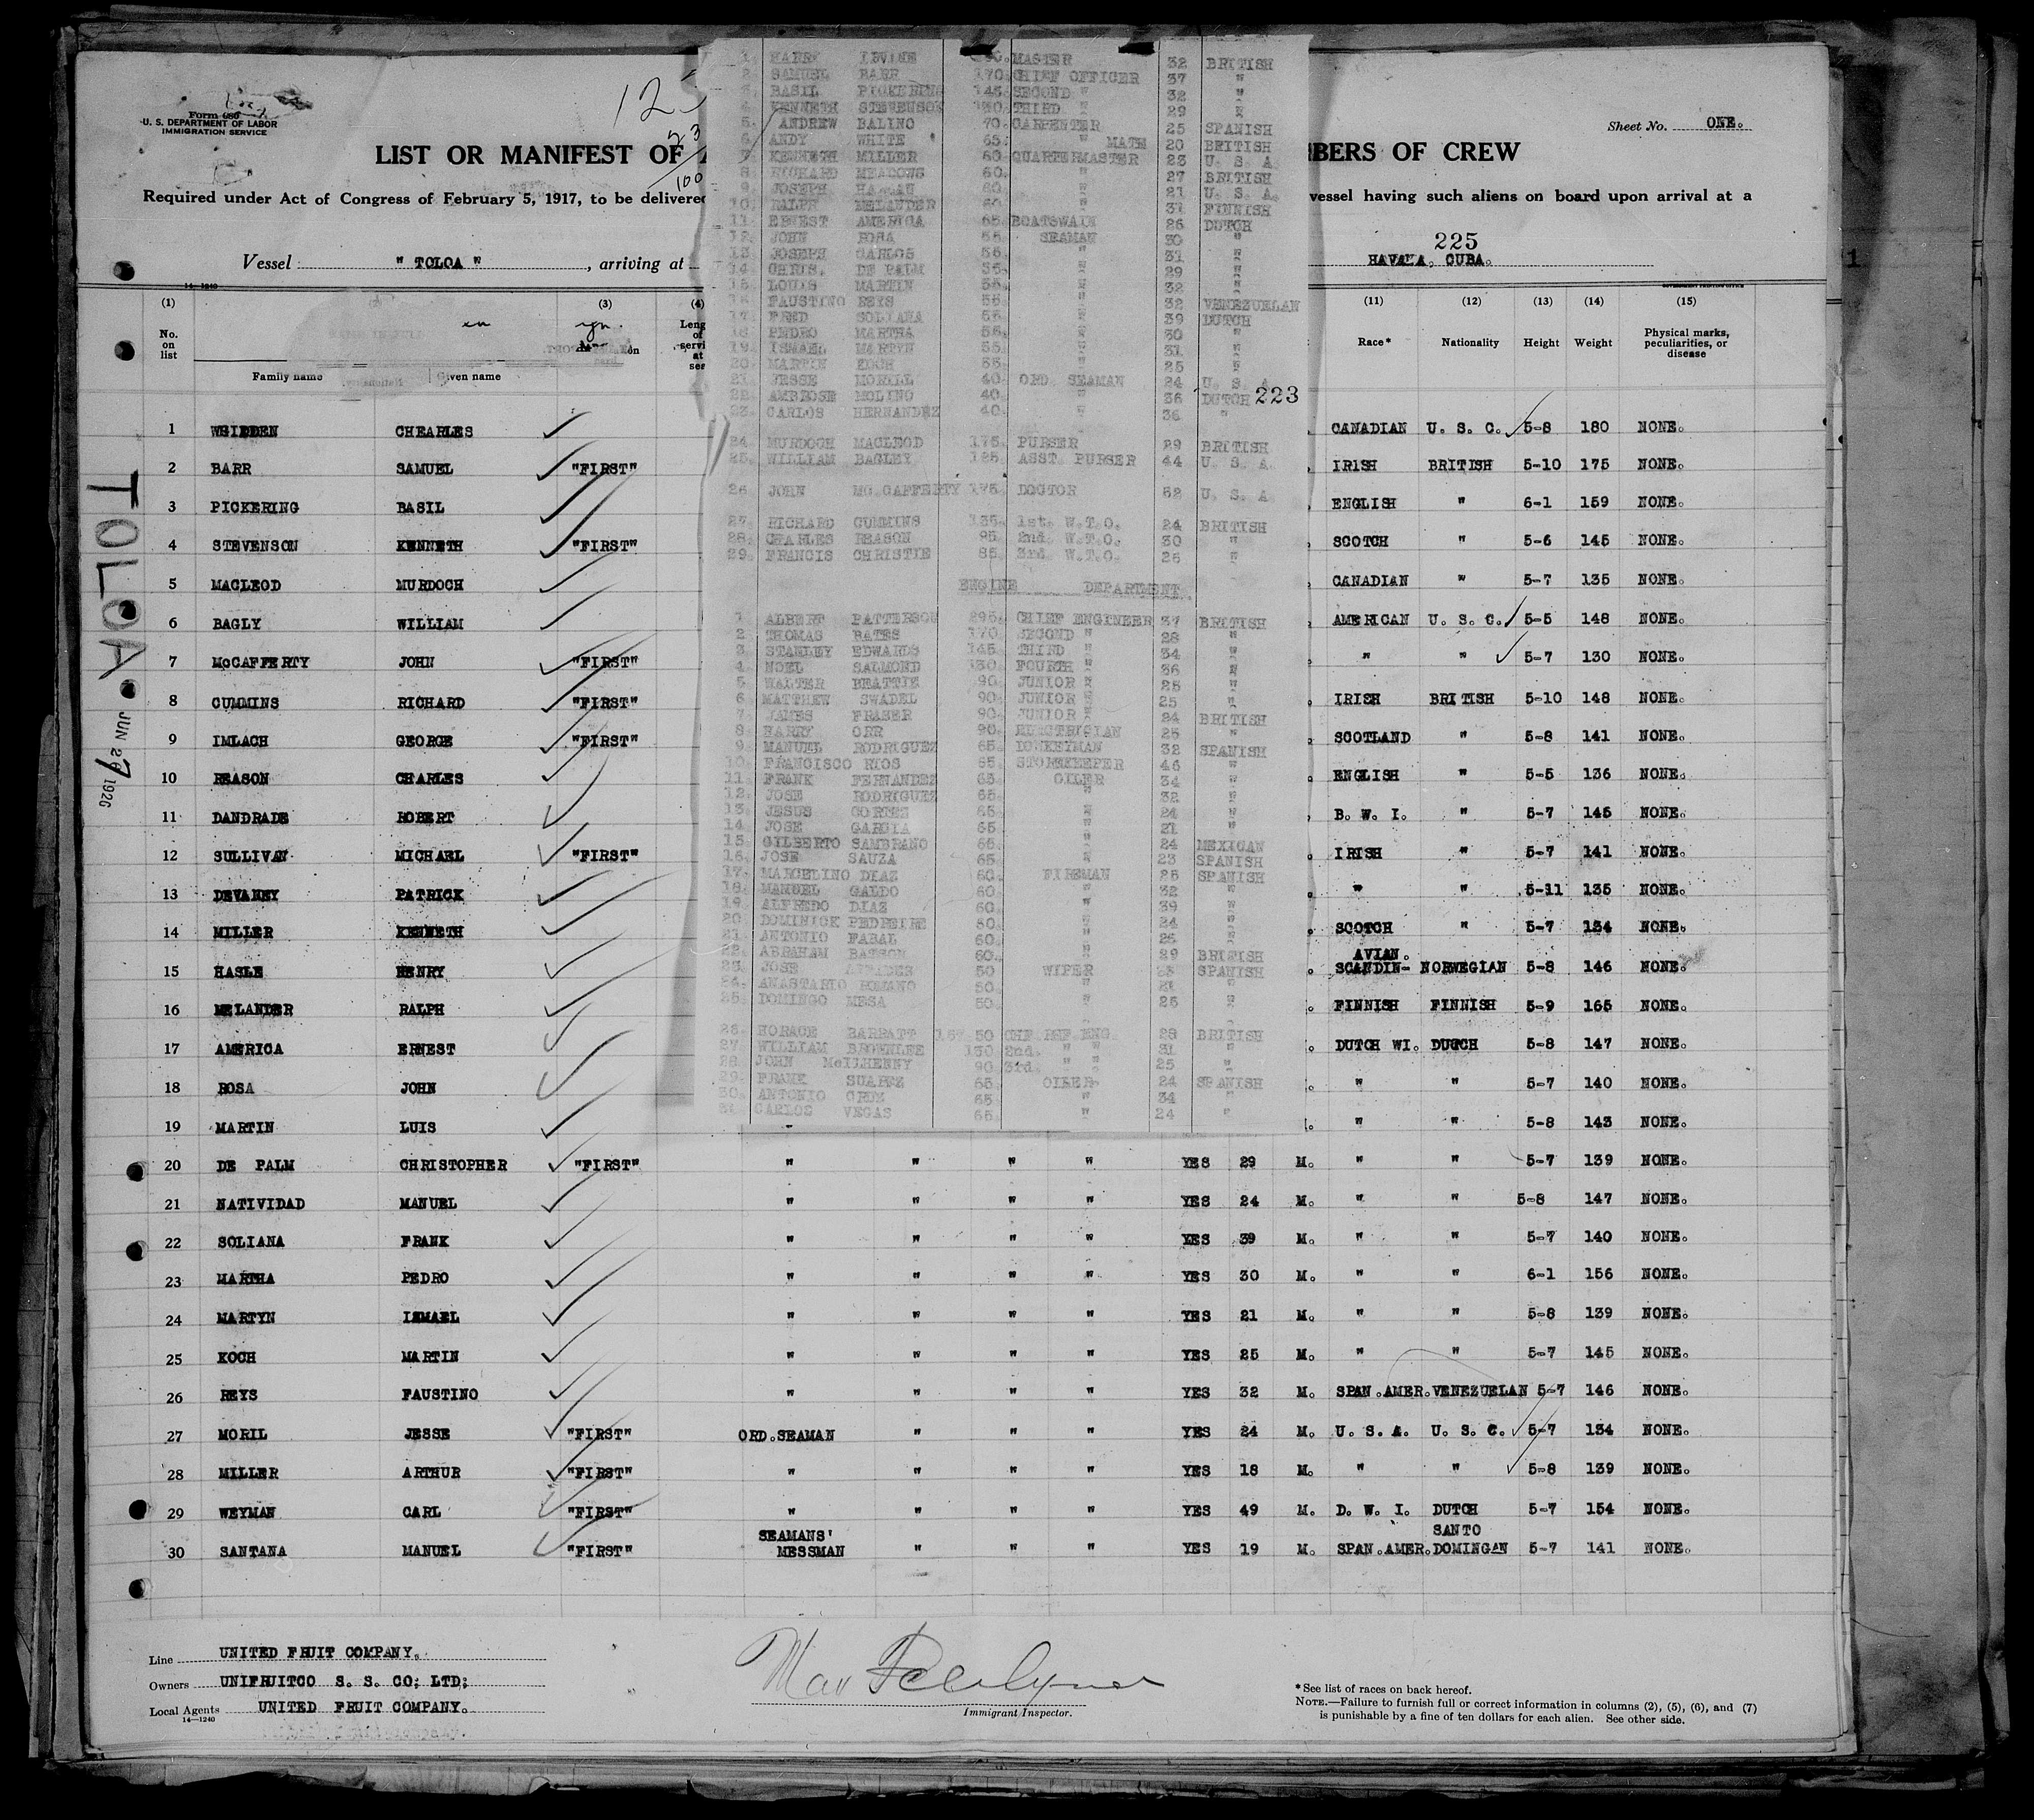 Form 680
U. S. DEPARTMENT OF LABOR
IMMIGRATION SERVICE
Sheet No. ONE.
LIST OR MANIFEST OF
BERS OF CREW
Required under Act of Congress of February 5, 1917, to be delivered
vessel having such aliens on board upon arrival at a
225
Vessel " TOLOA " , arriving at
HAVANA. CUBA.
14—1240
(1) (3) (4) (11) (12) (13) (14) (15)
No. on list
Family name Given name
Race* Nationality Height Weight Physical marks, peculiarities, or disease
1 CHEARLES CANADIAN U. S. C. 5-8 180 NONE.
2 BARR SAMUEL "FIRST" IRISH BRITISH 5-10 175 NONE.
3 PICKERING BASIL ENGLISH " 6-1 159 NONE.
4 STEVENSON KENNETH "FIRST" SCOTCH " 5-6 145 NONE.
5 MACLEOD MURDOCH CANADIAN " 5-7 135 NONE.
6 BAGLY WILLIAM AMERICAN U. S. C. 5-5 148 NONE.
7 McCAFFERTY JOHN "FIRST" " " 5-7 130 NONE.
8 CUMMINS RICHARD "FIRST" IRISH BRITISH 5-10 148 NONE.
9 IMLACH GEORGE "FIRST" SCOTLAND " 5-8 141 NONE.
10 REASON CHARLES ENGLISH " 5-5 136 NONE.
11 DANDRADE ROBERT B. W. I. " 5-7 145 NONE.
12 SULLIVAN MICHAEL "FIRST" IRISH " 5-7 141 NONE.
13 DEVANEY PATRICK " " 5-11 135 NONE.
14 MILLER KENNETH SCOTCH " 5-7 134 NONE.
AVIAN.
15 HASLE HENRY SCANDIN- NORWEGIAN 5-8 146 NONE.
16 MELANDER RALPH FINNISH FINNISH 5-9 165 NONE.
17 AMERICA ERNEST DUTCH WI. DUTCH 5-8 147 NONE.
18 ROSA JOHN " " 5-7 140 NONE.
19 MARTIN LUIS " " 5-8 143 NONE.
20 DE PALM CHRISTOPHER "FIRST" " " " " YES 29 M. " " 5-7 139 NONE.
21 NATIVIDAD MANUEL " " " " YES 24 M. " " 5-8 147 NONE.
22 SOLIANA FRANK " " " " YES 39 M. " " 5-7 140 NONE.
23 MARTHA PEDRO " " " " YES 30 M. " " 6-1 156 NONE.
24 MARTYN ISMAEL " " " " YES 21 M. " " 5-8 139 NONE.
25 KOCH MARTIN " " " " YES 25 M. " " 5-7 145 NONE.
26 REYS FAUSTINO " " " " YES 32 M. SPAN.AMER. VENEZUELAN 5-7 146 NONE.
27 MORIL JESSE "FIRST" ORD.SEAMAN " " " YES 24 M. U. S. A. U. S. C. 5-7 134 NONE.
28 MILLER ARTHUR "FIRST" " " " " YES 18 M. " " 5-8 139 NONE.
29 WEYMAN CARL "FIRST" " " " " YES 49 M. D. W. I. DUTCH 5-7 154 NONE.
SEAMANS' SANTO
30 SANTANA MANUEL "FIRST" MESSMAN " " " YES 19 M. SPAN.AMER. DOMINGAN 5-7 141 NONE.
1. HARRY LEVINE MASTER 32 BRITISH
2. SAMUEL BARR 170. CHIEF OFFICER 37 "
3. BASIL PICKERING 145. SECOND " 32 "
4. KENNETH STEVENSON 130. THIRD " 29 "
5. ANDREW BALINO 70. CARPENTER 25 SPANISH
6. ANDY WHITE 65. " MATE 20 BRITISH
7. KENNETH MILLER 60. QUARTERMASTER 23 U. S. A.
8. RICHARD MEADOWS 60. " 27 BRITISH
9. JOSEPH 60. " 21 U. S. A.
10. RALPH MELANDER 60. " 31 FINNISH
11. ERNEST AMERICA 65. BOATSWAIN 26 DUTCH
12. JOHN ROSA 55. SEAMAN 30 "
13. JOSEPH CARLOS 55. " 31 "
14. CHRIS. DE PALM 55. " 29 "
15. LOUIS MARTIN 55. " 32 "
16. FAUSTINO REYS 55. " 32 VENEZUELAN
17. FRED SOLIANA 55. " 39 DUTCH
18. PEDRO MARTHA 55. " 30 "
19. ISMAEL MARTYN 55. " 31 "
20. MARTIN KOCH 55. " 25 "
21. JESSE MORILL 40. ORD SEAMAN 24 U. S. A.
22. AMBROSE MOLINO 40. " 36 DUTCH 223
23. CARLOS HERNANDEZ 40. " 36 "
24. MURDOCH MACLEOD 175. PURSER 29 BRITISH
25. WILLIAM BAGLEY 125. ASST. PURSER 44 U. S. A.
26. JOHN MC CAFFERTY 175. DOCTOR 52 U. S. A.
27. RICHARD CUMMINS 135. 1st. W.T.O. 24 BRITISH
28. CHARLES REASON 95. 2nd. W.T.O. 30 "
29. FRANCIS CHRISTIE 85. 3rd. W.T.O. 25 "
ENGINE DEPARTMENT.
1. ALBERT PATTERSON 295. CHIEF ENGINEER 37 BRITISH
2. THOMAS BATES 170. SECOND " 28 "
3. STANLEY EDWARDS 145. THIRD " 34 "
4. NOEL SALMOND 130. FOURTH " 36 "
5. WALTER BEATTIE 90. JUNIOR " 25 "
6. MATTHEW SWADEL 90. JUNIOR " 25 "
7. JAMES FRASER 90. JUNIOR " 24 BRITISH
8. HARRY ORR 90. ELECTRICIAN 25 "
9. MANUEL RODRIGUEZ 65. DONKEYMAN 32 SPANISH
10. FRANCISCO RIOS 65. STOREKEEPER 46 "
11. FRANK FERNANDEZ 65. OILER 34 "
12. JOSE RODRIGUEZ 65. " 32 "
13. JESUS CORTEZ 65. " 24 "
14. JOSE GARCIA 65. " 21 "
15. GILBERTO SAMBRANO 65. " 24 MEXICAN
16. JOSE SAUZA 65. " 23 SPANISH
17. MARCELINO DIAZ 60. FIREMAN 25 SPANISH
18. MANUEL GALDO 60. " 32 "
19. ALFREDO DIAZ 60. " 39 "
20. DOMINICK 60. " 24 "
21. ANTONIO FABAL 60. " 25 "
22. ABRAHAM BATSON 60. " 29 BRITISH
23. JOSE 50 WIPER SPANISH
24. ANASTARIO ROMANO 50. " 21 "
25. DOMINGO MESA 50. " 25 "
26. HORACE BARRATT 157.50 CHF REF ENG. 28 BRITISH
27. WILLIAM BROWNLEE 130 2nd. " " 31 "
28. JOHN McILHENNY 90 3rd. " " 25 "
29. FRANK SUAREZ 65. OILER 24 SPANISH
30. ANTONIO CRUZ 65. " 34 "
31. CARLOS VEGAS 65. " 24 "
TOLOA
JUN 27 1926
Line UNITED FRUIT COMPANY.
Owners UNIFRUITCO S. S. CO; LTD;
Local Agents UNITED FRUIT COMPANY.
14—1240
Immigrant Inspector.
*See list of races on back hereof.
NOTE.—Failure to furnish full or correct information in columns (2), (5), (6), and (7)
is punishable by a fine of ten dollars for each alien. See other side.